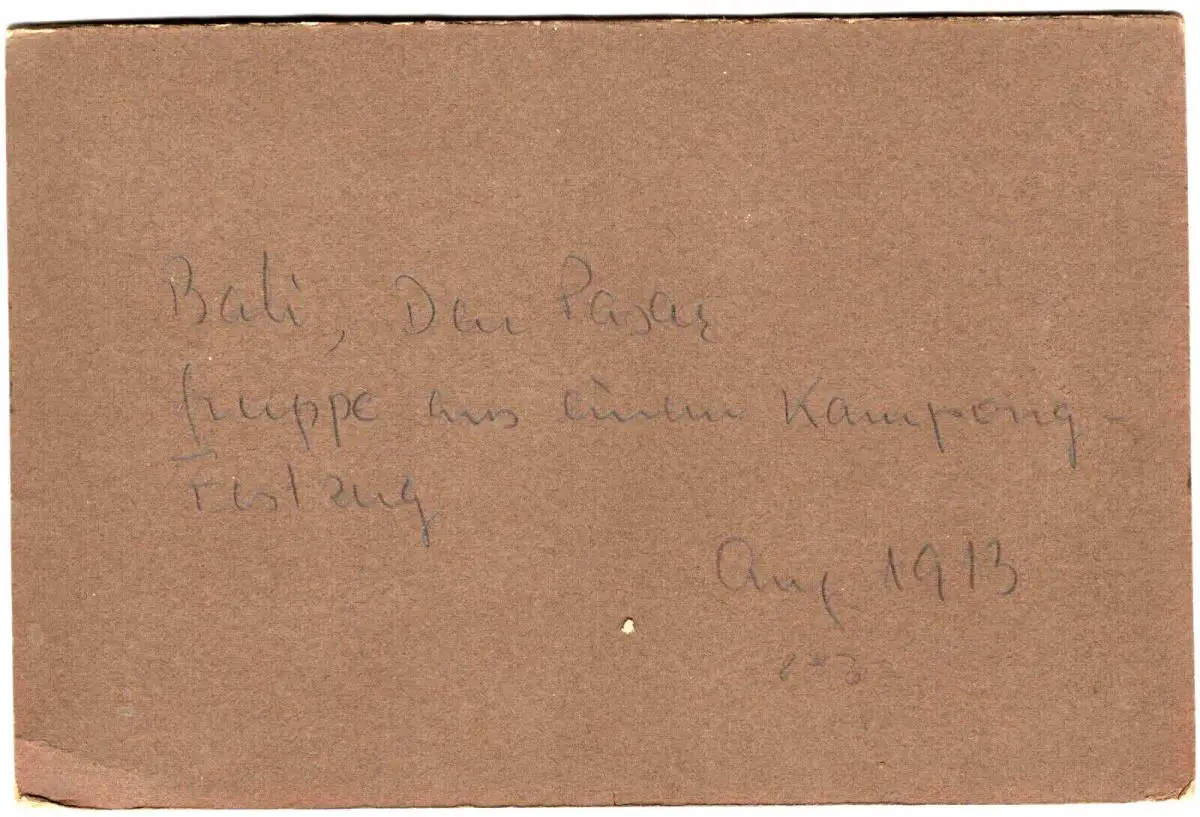 Bali, Den Pasar
Gruppe aus einem Kampong-
Festzug
Aug 1913